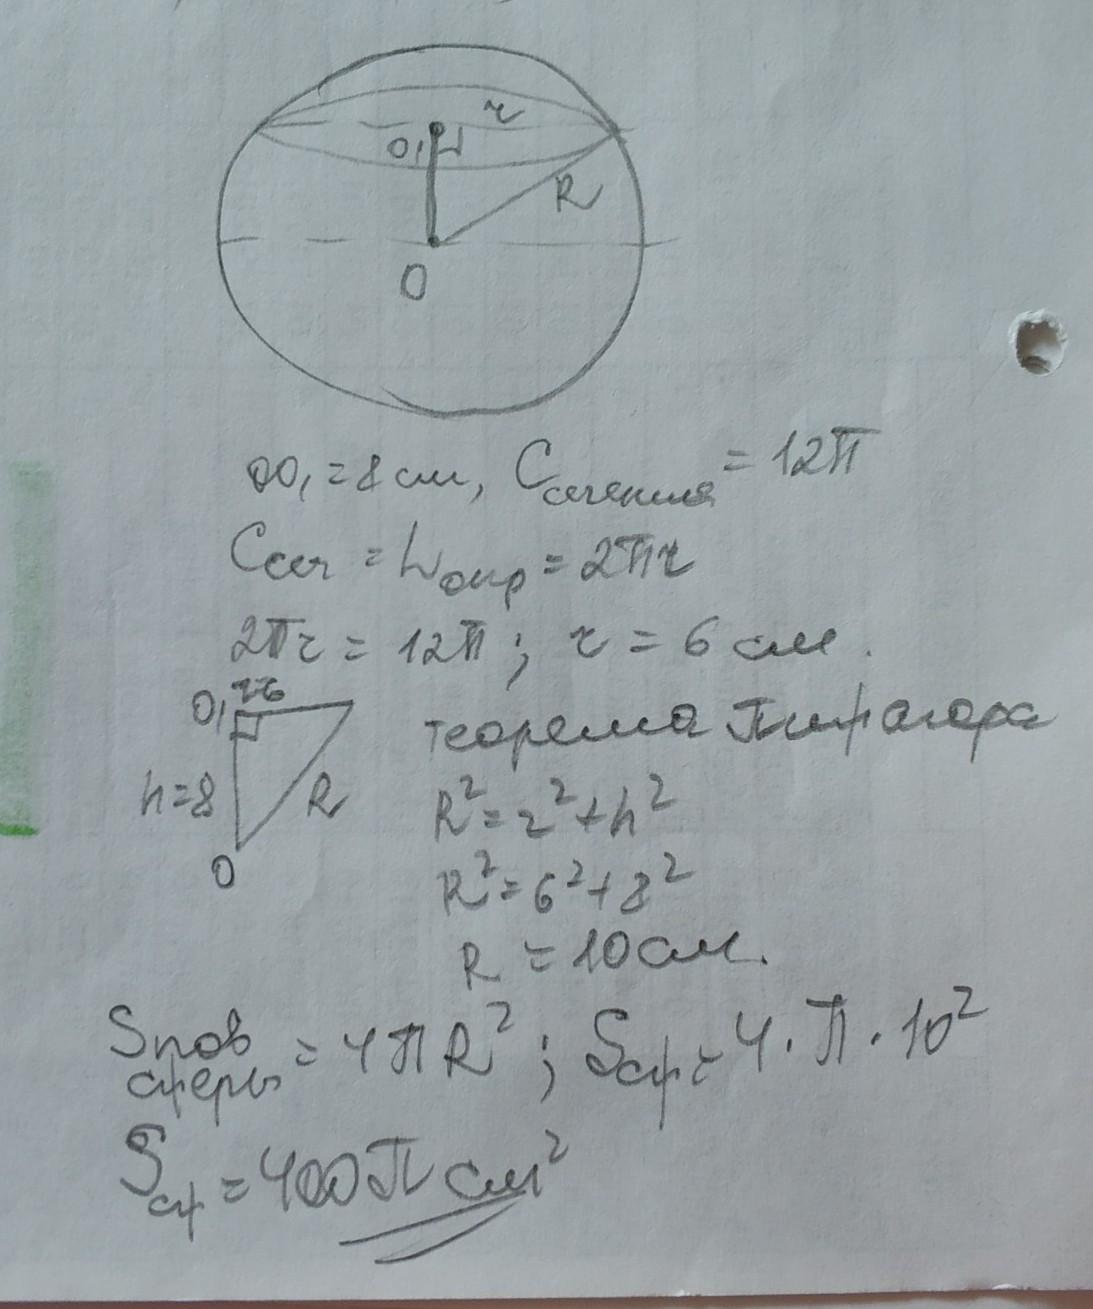 r
O₁
R
O
OO₁ = 8 см, Cсечения = 12π
Cсеч = Lокр = 2πr
2πr = 12π ; r = 6 см.
O₁
теорема Пифагора
h=8
R
R² = r² + h²
O
R² = 6² + 8²
R = 10 см.
Sпов сферы = 4πR² ; Sсф = 4 · π · 10²
Sсф = 400π см²